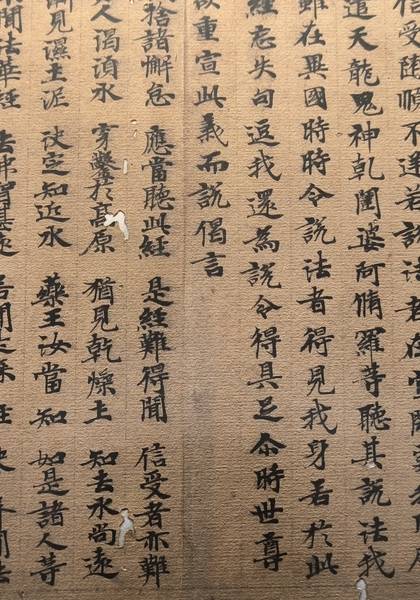 信受隨順不逆若說法者在空閑處
遣天龍鬼神乾闥婆阿脩羅等聽其說法我
雖在異國時時令說法者得見我身若於此
經忘失句逗我還為說令得具足尒時世尊
欲重宣此義而說偈言
捨諸懈怠 應當聽此經 是經難得聞 信受者亦難
人渴須水 穿鑿於高原 猶見乾燥土 知去水尚遠
漸見濕土泥 決定知近水 藥王汝當知 如是諸人等
聞法華經 去佛智甚遠 若聞是深經 決聲聞法